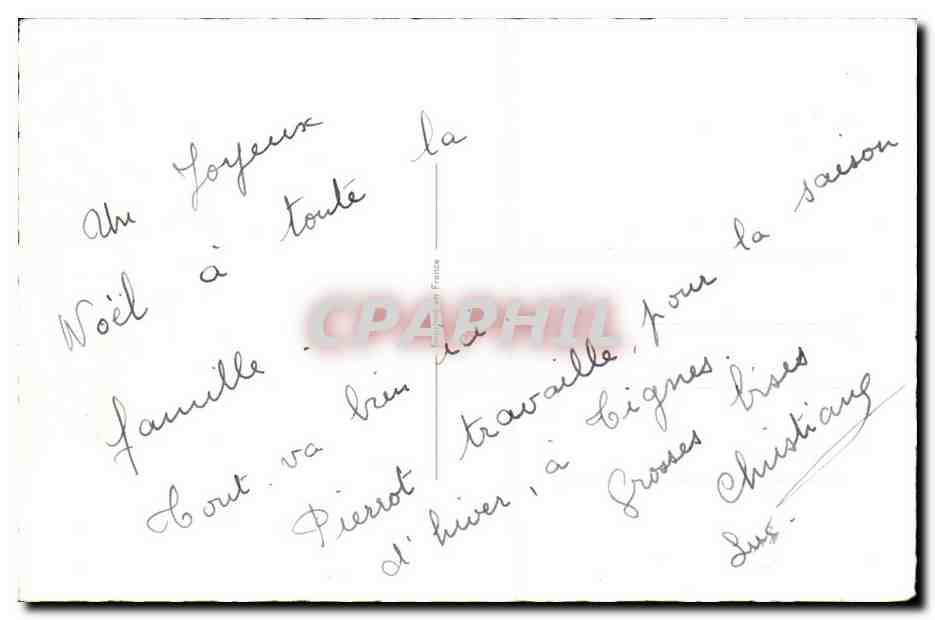 Un Joyeux
Noël à toute la
famille.
Tout va bien ici.
Pierrot travaille, pour la saison
d'hiver, à Tignes.
Grosses bises
Christiane
Luc.
en France
CPAPHIL